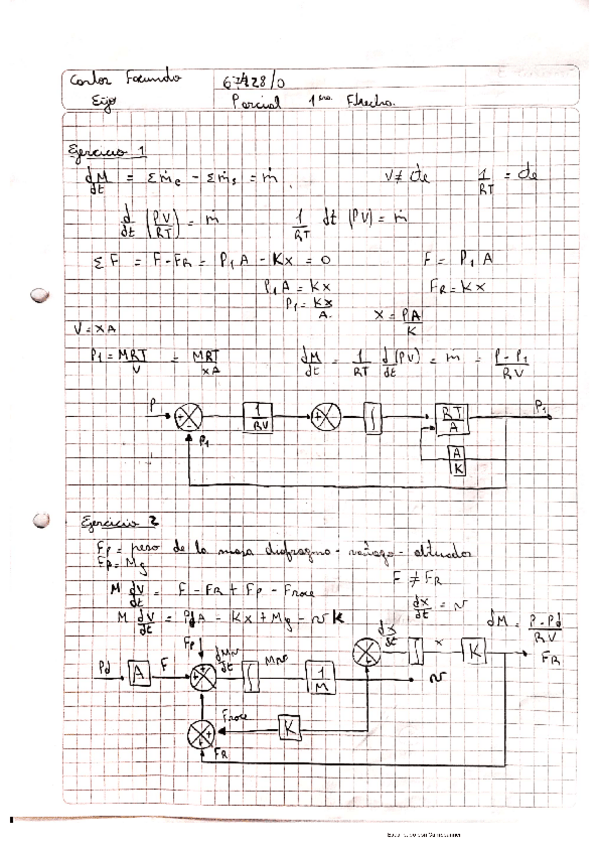 Carlos Facundo 67428/0
Parcial 1ra Fecha.
Ejercicio 1
dM/dt = Σṁe - Σṁs = ṁ V ≠ cte 1/RT = cte
d/dt (PV/RT) = ṁ 1/RT dt (PV) = ṁ
ΣF = F - FR = P1 A - Kx = 0 F = P1 A
P1 A = Kx FR = Kx
P1 = Kx/A. x = PA/K
V = xA
P1 = MRT/V = MRT/xA dM/dt = 1/RT d(PV)/dt = ṁ = P - P1/RV
P + - 1/RV + - ∫ RT/A P1
P1 A/K
Ejercicio 2
Fp = peso de la masa diafragma - vástago - obturador
Fp = Mg F ≠ FR
M dv/dt = F - FR + Fp - Froce dx/dt = v
M dv/dt = PdA - Kx + Mg - vK dM = P - Pd/RV
Fp dMv/dt Mv dx/dt x K FR
Pd A F + + - ∫ 1/M ∫ v
Froce K
FR
Escaneado con CamScanner